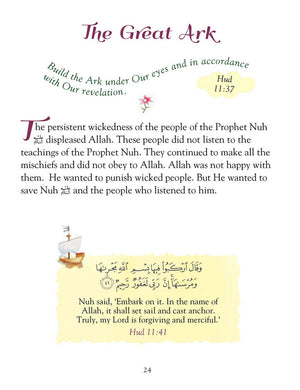 The Great Ark
Build the Ark under Our eyes and in accordance
with Our revelation.
Hud
11:37
The persistent wickedness of the people of the Prophet Nuh
ﷺ displeased Allah. These people did not listen to the
teachings of the Prophet Nuh. They continued to make all the
mischiefs and did not obey to Allah. Allah was not happy with
them.  He wanted to punish wicked people. But He wanted to
save Nuh ﷺ and the people who listened to him.
وَقَالَ ارْكَبُوا فِيهَا بِسْمِ اللَّهِ مَجْرَاهَا
وَمُرْسَاهَا إِنَّ رَبِّي لَغَفُورٌ رَّحِيمٌ ٤١
Nuh said, ‘Embark on it. In the name of
Allah, it shall set sail and cast anchor.
Truly, my Lord is forgiving and merciful.’
Hud 11:41
24